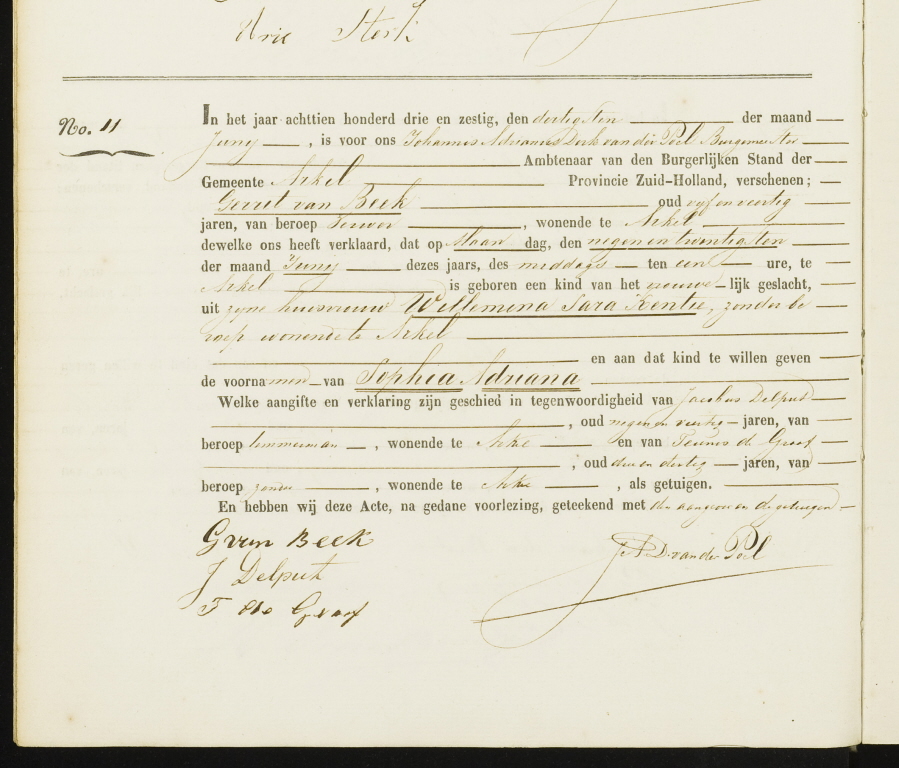 Arie Sterk
No. 11
In het jaar achttien honderd drie en zestig, den dertigsten der maand
Junij, is voor ons Johannes Adrianus Dirk van der Poel Burgemeester
Ambtenaar van den Burgerlijken Stand der
Gemeente Arkel Provincie Zuid-Holland, verschenen;
Gerrit van Beek oud vijf en veertig
jaren, van beroep, wonende te Arkel
dewelke ons heeft verklaard, dat op Maandag, den negen en twintigsten
der maand Junij dezes jaars, des middags ten een ure, te
Arkel is geboren een kind van het vrouwelijk geslacht,
uit zijne huisvrouw Willemina Sara Kentie, zonder be
roep wonende te Arkel
en aan dat kind te willen geven
de voornamen van Sophia Adriana
Welke aangifte en verklaring zijn geschied in tegenwoordigheid van Jacobus Delput
, oud negen en veertig jaren, van
beroep timmerman, wonende te Arkel en van Teunis de Graaf
, oud drie en dertig jaren, van
beroep zonder, wonende te Arkel, als getuigen.
En hebben wij deze Acte, na gedane voorlezing, geteekend met den aangever en de getuigen
G van Beek
J A D. van der Poel
J Delput
T de Graaf